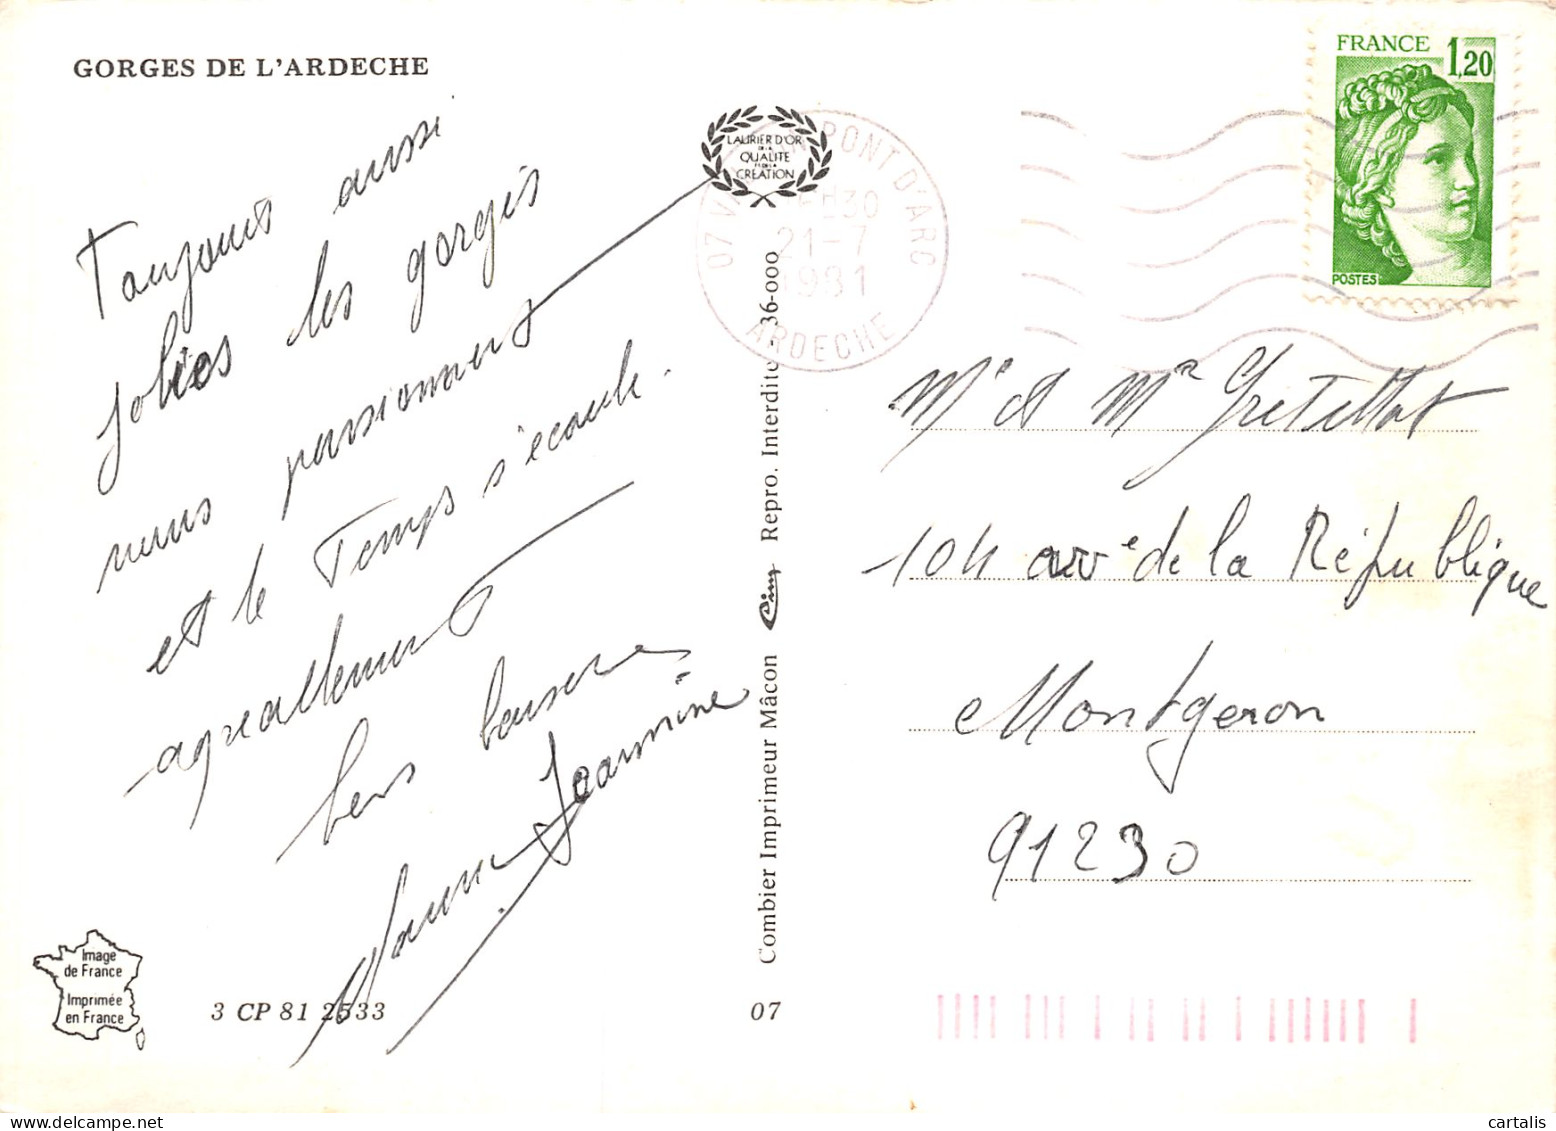 GORGES DE L'ARDECHE
Toujours aussi
jolies les gorges
nous passionnent
et le Temps s'écoule.
agréablement
bons baisers
Jeannine
LAURIER D'OR
DE LA
QUALITE
ET DE LA
CREATION
07 PONT D'ARC
21-7
1981
ARDECHE
FRANCE 1,20
POSTES
Combier Imprimeur Mâcon Cim Repro. Interdite 36-000
Mr et Mme
104 ave de la République
Montgeron
91230
Image
de France
Imprimée
en France
3 CP 81 2533
07
cartalis